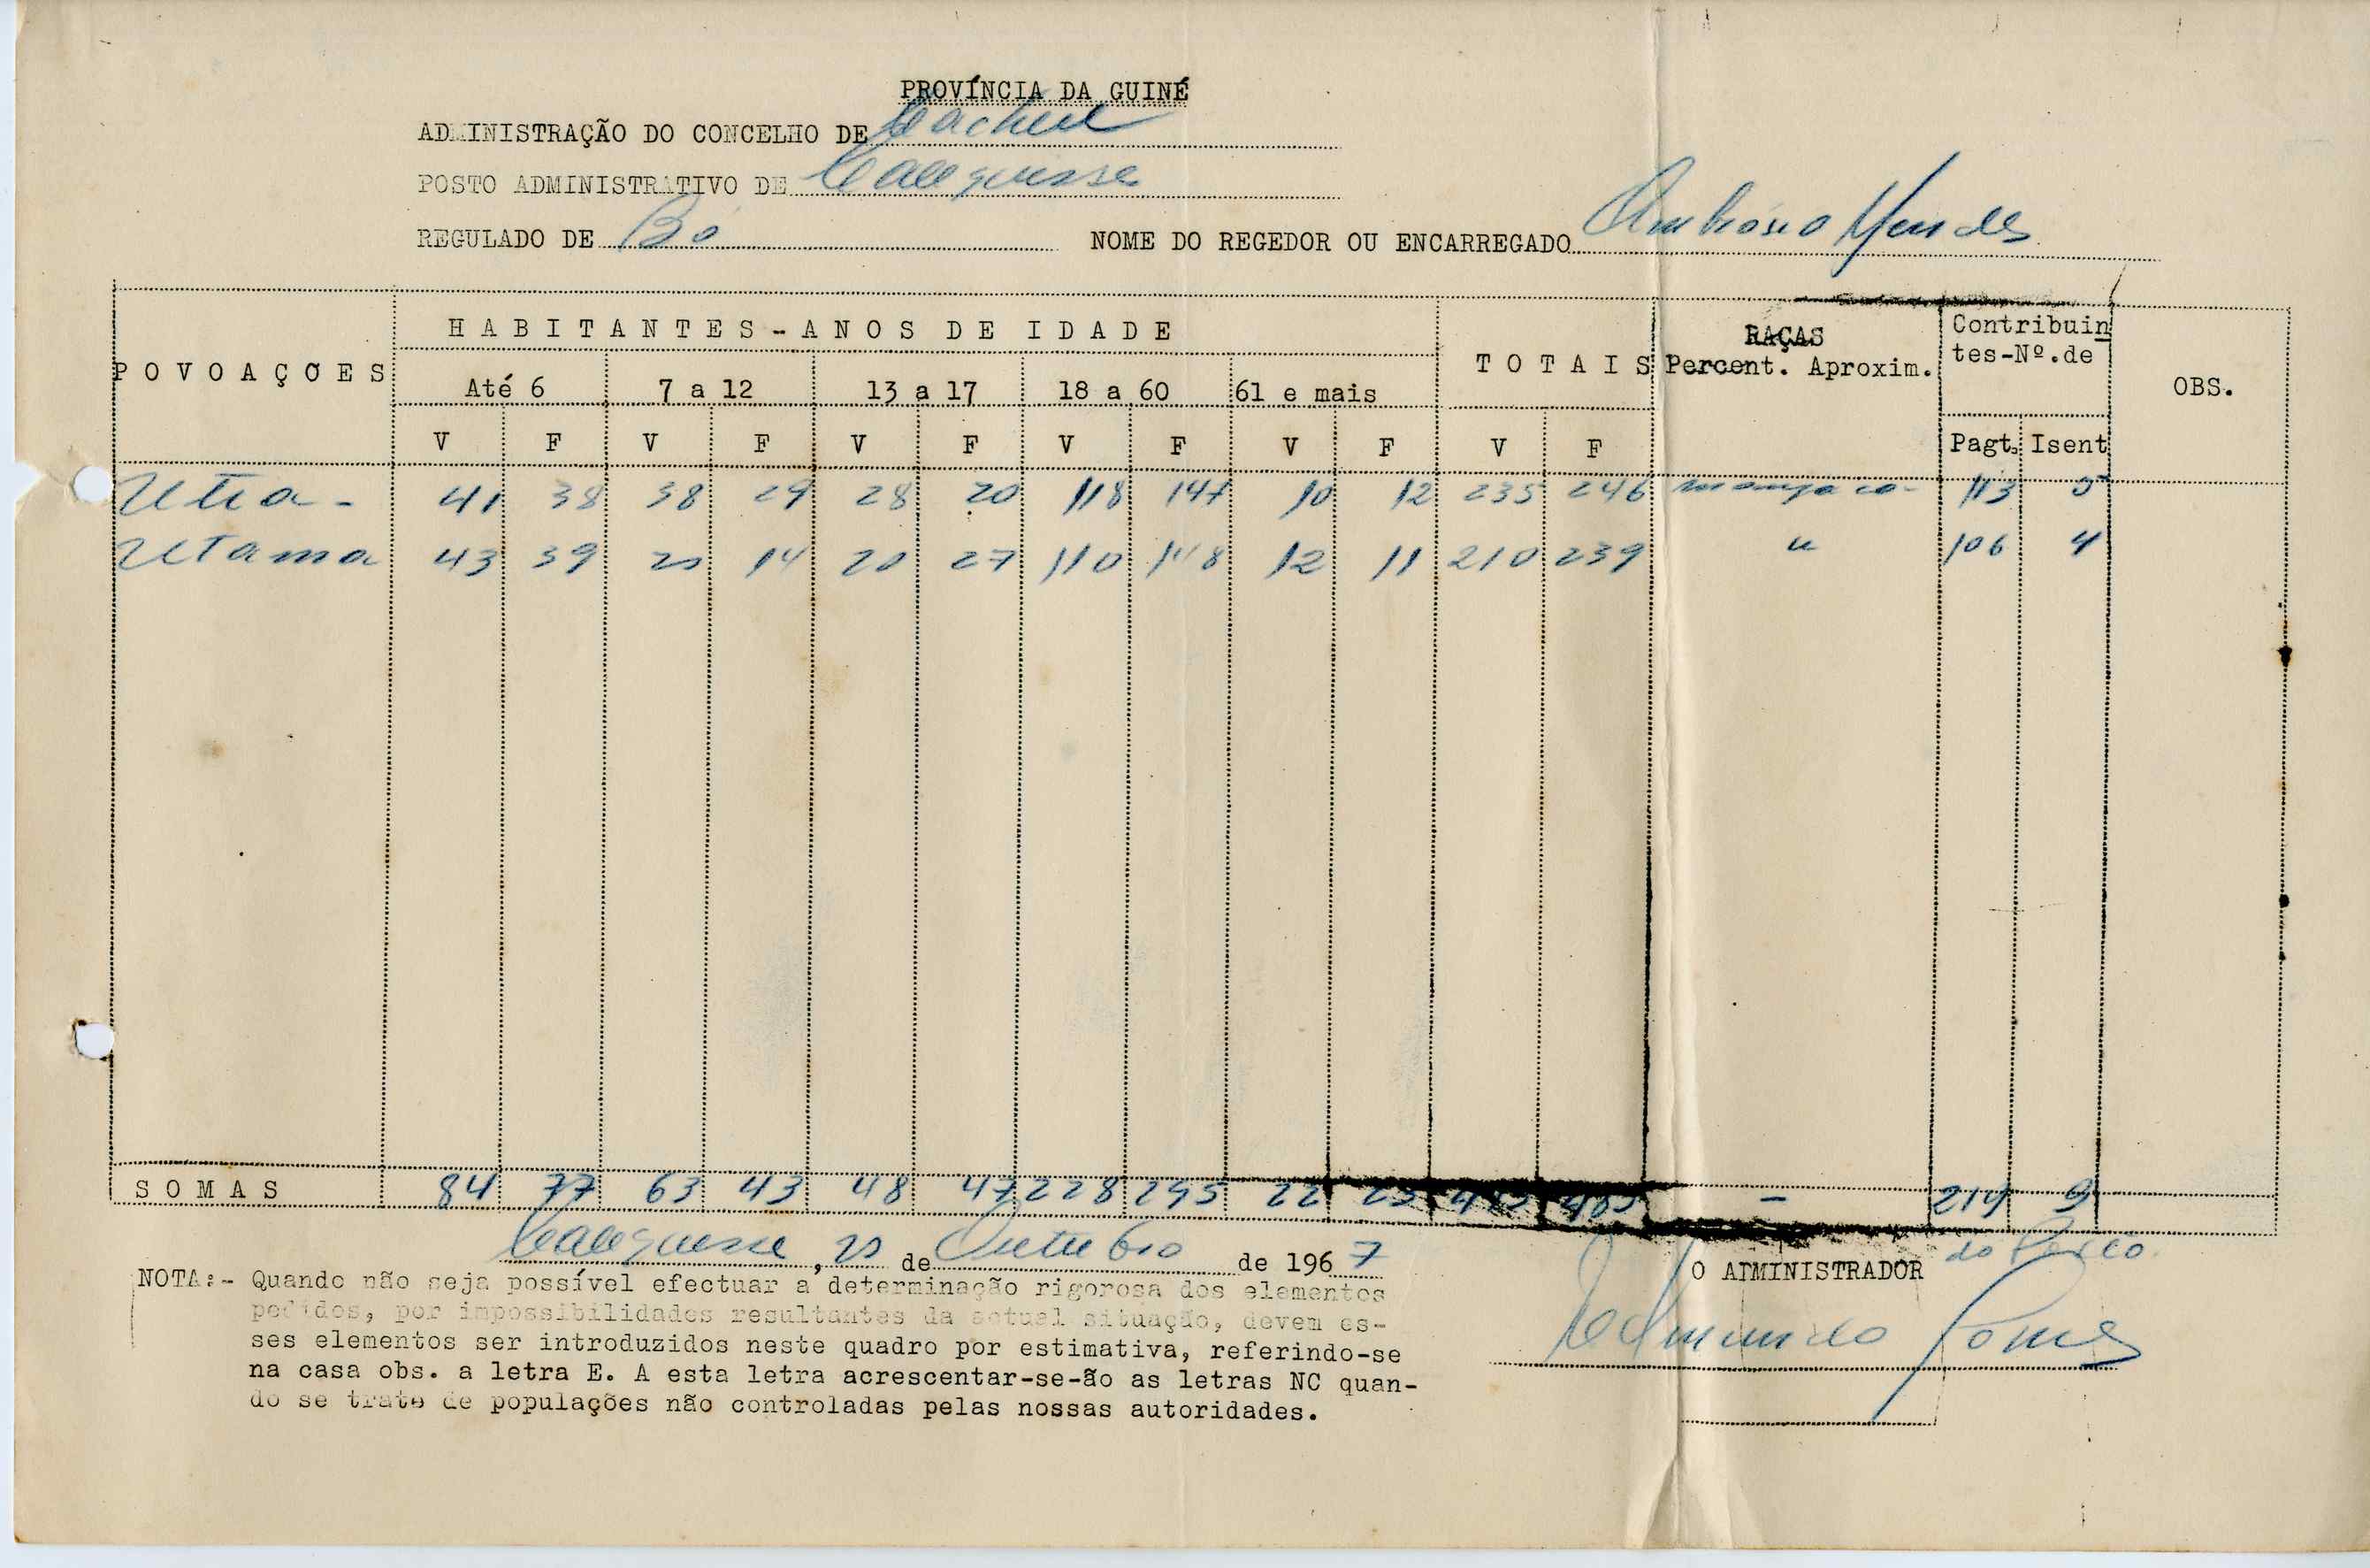 PROVÍNCIA DA GUINÉ
ADMINISTRAÇÃO DO CONCELHO DE Cacheu
POSTO ADMINISTRATIVO DE Caleguisse
REGULADO DE Bó NOME DO REGEDOR OU ENCARREGADO Ambrósio Mendes
POVOAÇÕES HABITANTES-ANOS DE IDADE TOTAIS RAÇAS Percent. Aproxim. Contribuintes-Nº.de OBS.
Até 6 7 a 12 13 a 17 18 a 60 61 e mais
V F V F V F V F V F V F Pagt. Isent
Utia - 41 38 38 29 28 20 118 147 10 12 235 246 manjaco- 113 5
Utama 43 39 25 14 20 27 110 148 12 11 210 239 " 106 4
SOMAS 84 77 63 43 48 47 228 295 22 23 445 485 - 219 9
Caleguisse, 25 de Outubro de 1967
O ADMINISTRADOR do Posto
Edmundo Gomes
NOTA:- Quando não seja possível efectuar a determinação rigorosa dos elementos
pedidos, por impossibilidades resultantes da actual situação, devem es-
ses elementos ser introduzidos neste quadro por estimativa, referindo-se
na casa obs. a letra E. A esta letra acrescentar-se-ão as letras NC quan-
do se trate de populações não controladas pelas nossas autoridades.